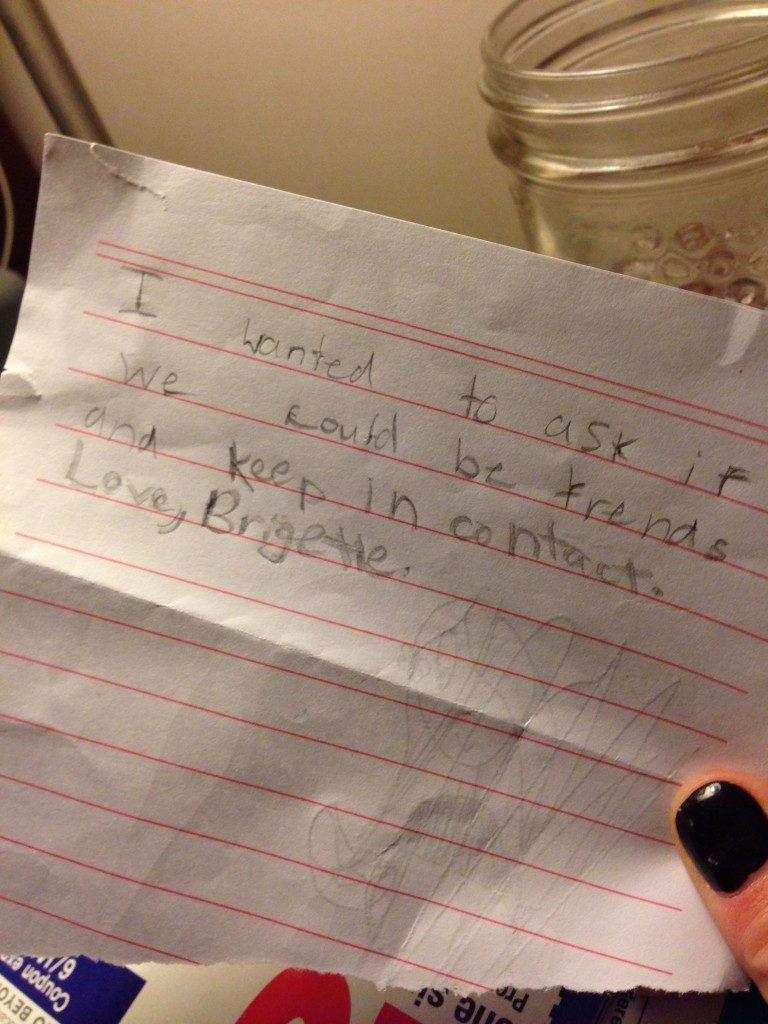 I wanted to ask if
we could be frends
and keep in contact.
Love, Brigette.
Coupon
6/1
BEYO